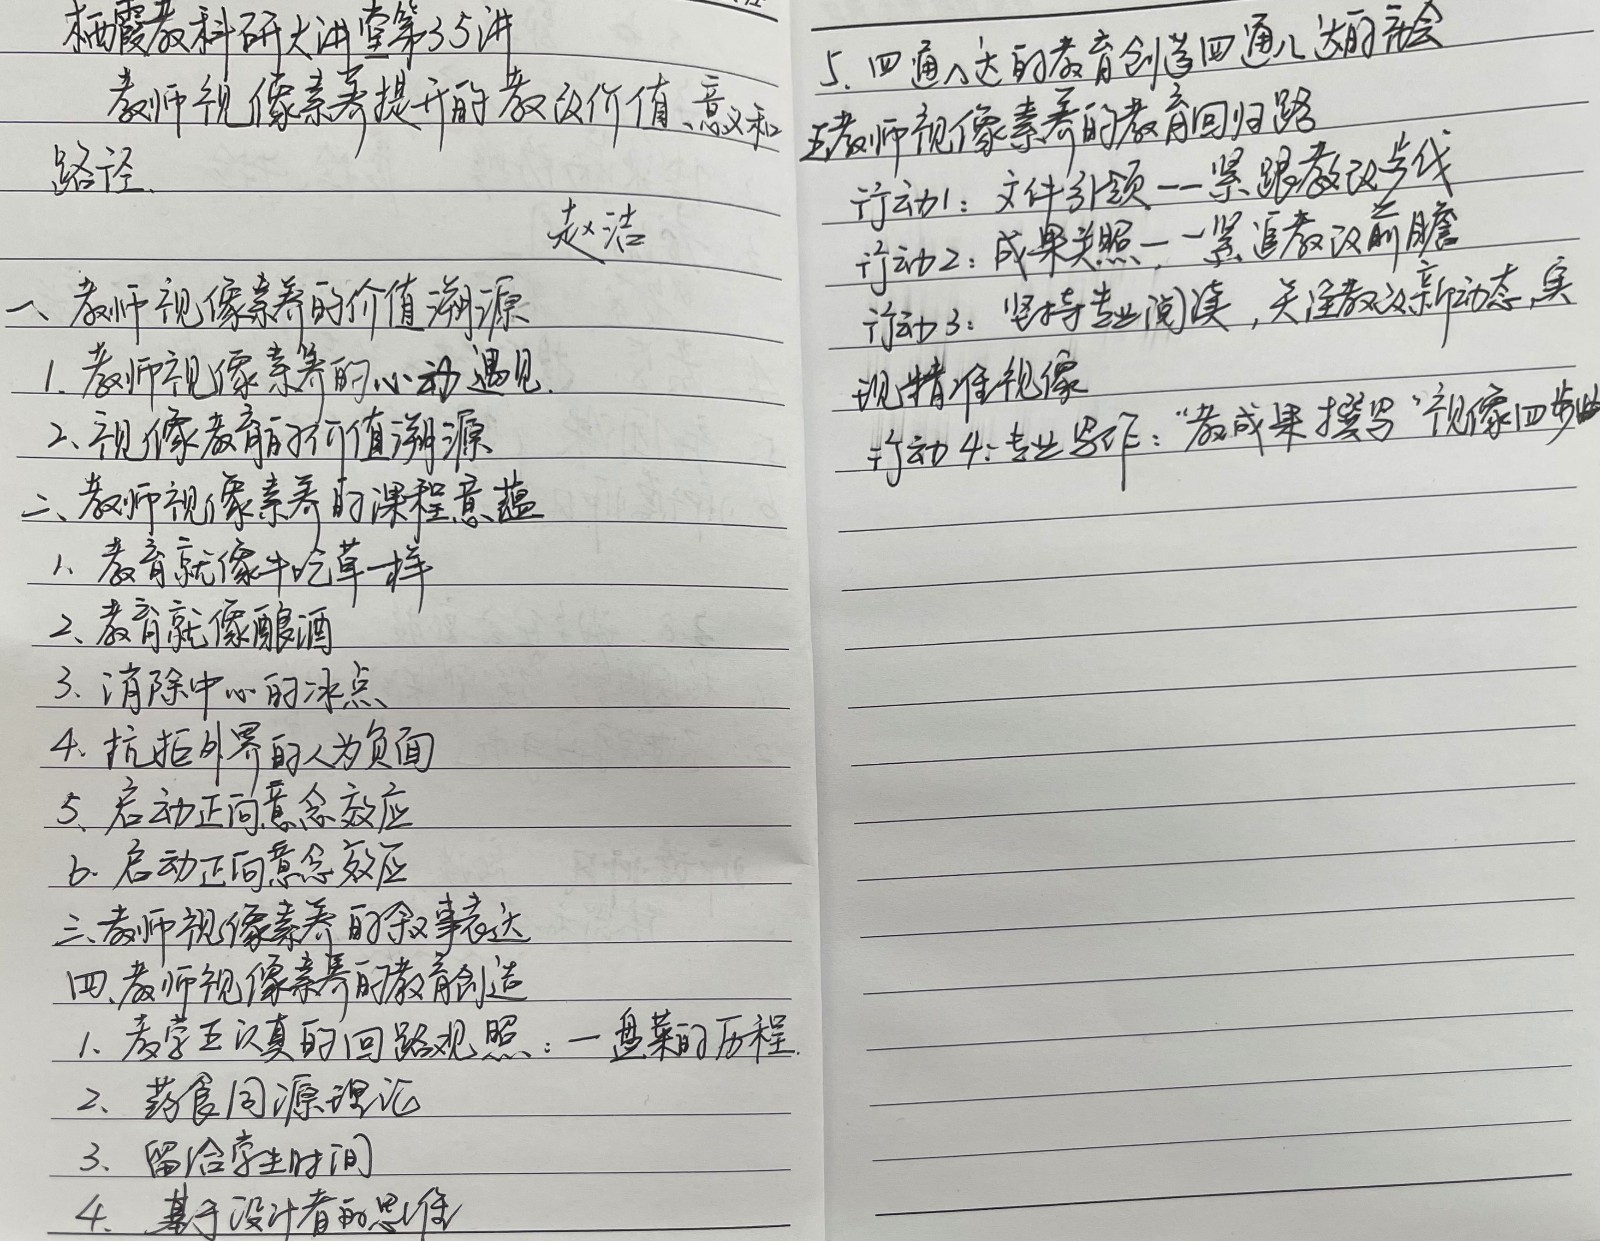 栖霞教科研大讲堂第35讲
教师视像素养提升的教改价值、意义和
路径.
赵洁
一、教师视像素养的价值溯源
1. 教师视像素养的心动遇见.
2、视像教育的价值溯源
二、教师视像素养的课程意蕴
1、教育就像牛吃草一样
2、教育就像酿酒
3、消除中心的冰点
4、抗拒外界的人为负面
5、启动正向意念效应
6. 启动正向意念效应
三、教师视像素养的叙事表达
四、教师视像素养的教育创造
1、教学五认真的回路观照：一盘菜的历程.
2、药食同源理论
3、留给学生时间
4、基于设计者的思维
5、四通八达的教育创造四通八达的社会
五教师视像素养的教育回归路
行动1：文件引领——紧跟教改步伐
行动2：成果关照——紧追教改前瞻
行动3：坚持专业阅读，关注教改新动态，实
现精准视像
行动4：专业写作：“教成果撰写”视像四步曲